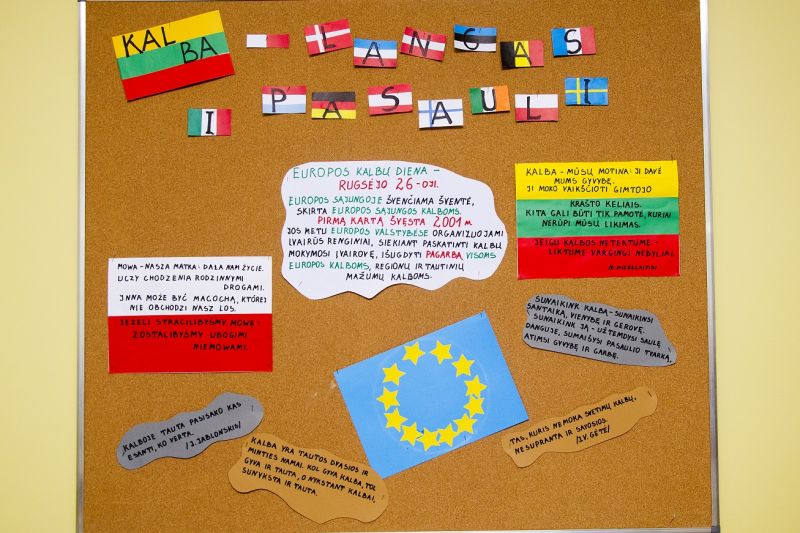 KAL
BA
LANGAS
Į PASAULĮ
EUROPOS KALBŲ DIENA –
RUGSĖJO 26-OJI.
EUROPOS SĄJUNGOJE ŠVENČIAMA ŠVENTĖ,
SKIRTA EUROPOS SĄJUNGOS KALBOMS.
PIRMĄ KARTĄ ŠVĘSTA 2001 M
JOS METU EUROPOS VALSTYBĖSE ORGANIZUOJAMI
ĮVAIRŪS RENGINIAI, SIEKIANT PASKATINTI KALBŲ
MOKYMOSI ĮVAIROVĘ, IŠUGDYTI PAGARBĄ VISOMS
EUROPOS KALBOMS, REGIONŲ IR TAUTINIŲ
MAŽUMŲ KALBOMS.
KALBA – MŪSŲ MOTINA: JI DAVĖ
MUMS GYVYBĘ.
JI MOKO VAIKŠČIOTI GIMTOJO
KRAŠTO KELIAIS.
KITA GALI BŪTI TIK PAMOTĖ, KURIAI
NERŪPI MŪSŲ LIKIMAS.
JEIGU KALBOS NETEKTUME –
LIKTUME VARGINGI NEBYLIAI.
MOWA – NASZA MATKA: DAŁA NAM ŻYCIE.
UCZY CHODZENIA RODZINNYMI
DROGAMI.
INNA MOŻE BYĆ MACOCHĄ, KTÓREJ
NIE OBCHODZI NASZ LOS.
JEŻELI STRACILIBYŚMY MOWĘ –
ZOSTALIBYŚMY UBOGIMI
NIEMOWAMI.
SUNAIKINK KALBĄ – SUNAIKINSI
SANTAIKĄ, VIENYBĘ IR GEROVĘ.
SUNAIKINK JĄ – UŽTEMDYSI SAULĘ
DANGUJE, SUMAIŠYSI PASAULIO TVARKĄ,
ATIMSI GYVYBĘ IR GARBĘ.
KALBOJE TAUTA PASISAKO KAS
ESANTI, KO VERTA.
/J. JABLONSKIS/
KALBA YRA TAUTOS DVASIOS IR
MINTIES NAMAI. KOL GYVA KALBA, TOL
GYVA IR TAUTA, O NYKSTANT KALBAI,
SUNYKSTA IR TAUTA.
TAS, KURIS NEMOKA SVETIMŲ KALBŲ,
NESUPRANTA IR SAVOSIOS.
/J.V. GĖTĖ/